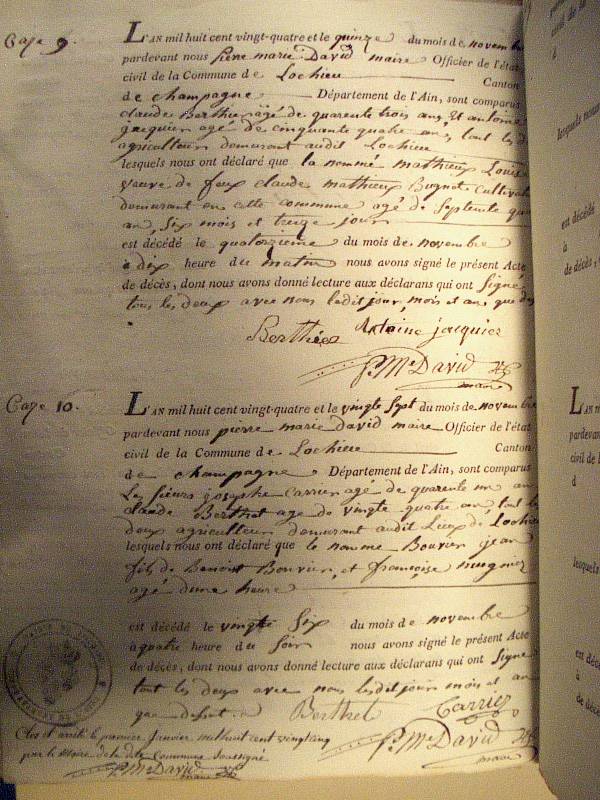 Caze 9.
L'AN mil huit cent vingt-quatre et le quinze du mois de novembre
pardevant nous pierre marie David maire Officier de l'état
civil de la Commune de Lochieu Canton
de champagne Département de l'Ain, sont comparus
claude Berthier âgé de quarente trois ans, Et antoine
jacquier agé de cinquante quatre an, tout les d
agriculteur demeurant audit Lochieu
lesquels nous ont déclaré que la nommé mathieux Louise
veuve de feux claude mathieux Bugnot Cultivat
demeurant en cette commune agé de Septente qua
an, Six mois et treize jour
est décédé le quatorzieme du mois de novembre
à dix heure du matin nous avons signé le présent Acte
de décès, dont nous avons donné lecture aux déclarans qui ont Signé
tous les deux avec nous ledit jour, mois et an, que d
Berthier Antoine jacquier
P. Mie David
maire
Caze 10.
L'AN mil huit cent vingt-quatre et le vingte Sept du mois de novembre
pardevant nous pierre marie david maire Officier de l'état
civil de la Commune de Lochieu Canton
de champagne Département de l'Ain, sont comparus
Les sieurs josephe Carrier agé de quarente un an
claude Berthet age de vingte quatre an tout l
deux agriculteur demeurant audit Lieux de Lochieu
lesquels nous ont déclaré que le nomme Bouvier jean
fils de Benoit Bouvier, et françoise mugnez
agé d'une heure
est décédé le vingte Six du mois de novembre
à quatre heure du Soir nous avons signé le présent Acte
de décès, dont nous avons donné lecture aux déclarans qui ont Signé
tout les deux avec nous lesdit jour mois et an
que dessus Berthet Carrier
Clos et arrêté le premier Janvier mil huit cent vingt cinq
par le Maire de la dite Commune Soussigné
P. Mie David
maire
P. Mie David
maire
lesquels nous
est décédé
à
de décès,
L'AN m
pardevant
civil de l
d
lesquels
est déc
à
de déc